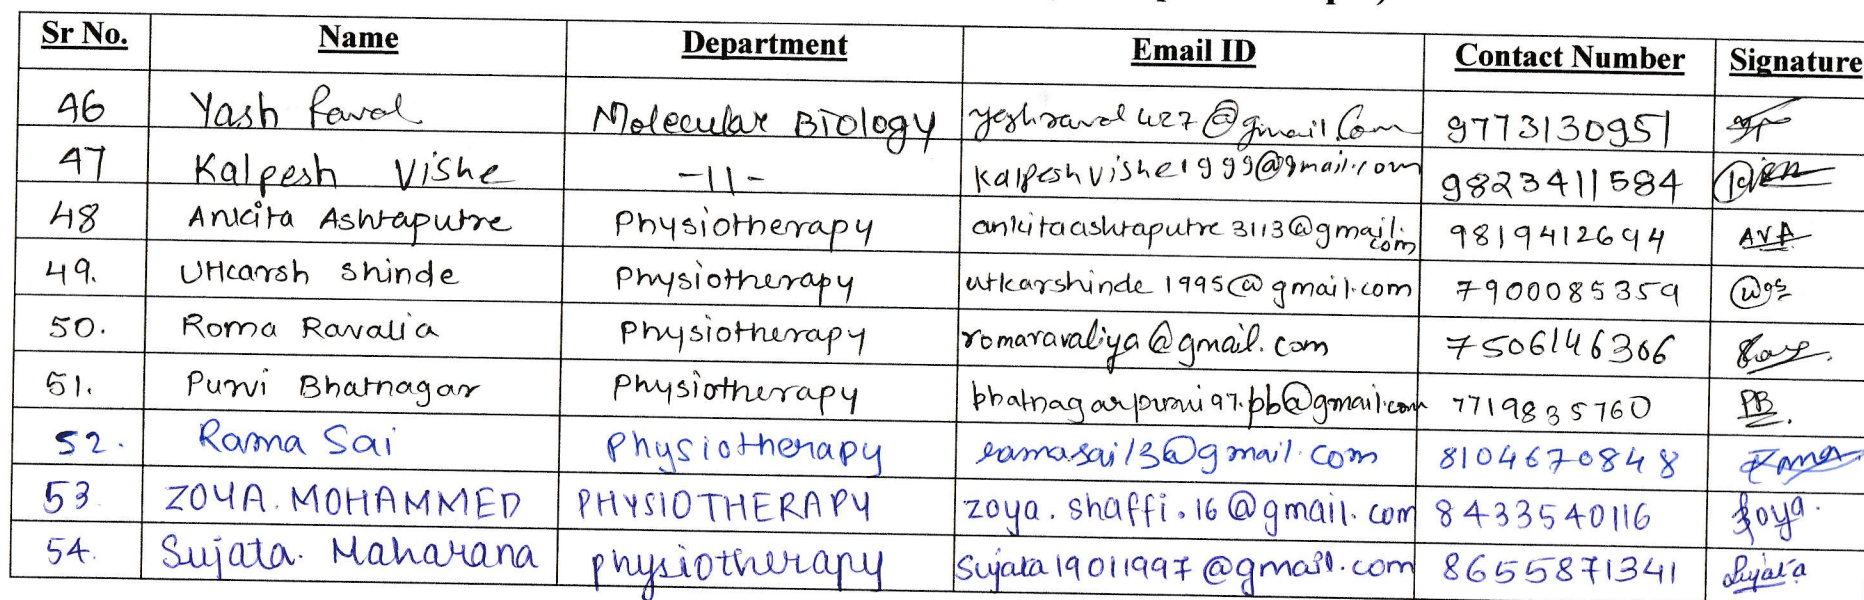 Sr No. Name Department Email ID Contact Number Signature
46 Yash Raval Molecular Biology yashraval427@gmail.com 9773130951
47 Kalpesh Vishe -11- kalpeshvishe1999@gmail.com 9823411584
48 Ankita Ashtaputre Physiotherapy ankitaashtaputre3113@gmail.com 9819412694 AVA
49. Utkarsh Shinde Physiotherapy utkarshinde1995@gmail.com 7900085359
50. Roma Ravalia Physiotherapy romaravaliya@gmail.com 7506146366
51. Purvi Bhatnagar Physiotherapy bhatnagarpurvi97.pb@gmail.com 7719835760 PB
52. Rama Sai Physiotherapy ramasai13@gmail.com 8104670848 Rama
53. ZOYA. MOHAMMED PHYSIOTHERAPY zoya.shaffi.16@gmail.com 8433540116 Zoya.
54. Sujata. Maharana physiotherapy Sujata19011997@gmail.com 8655871341 Sujata